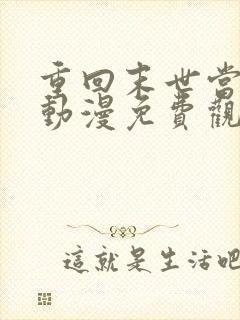 重回末世當
動漫免費觀
這就是生活吧